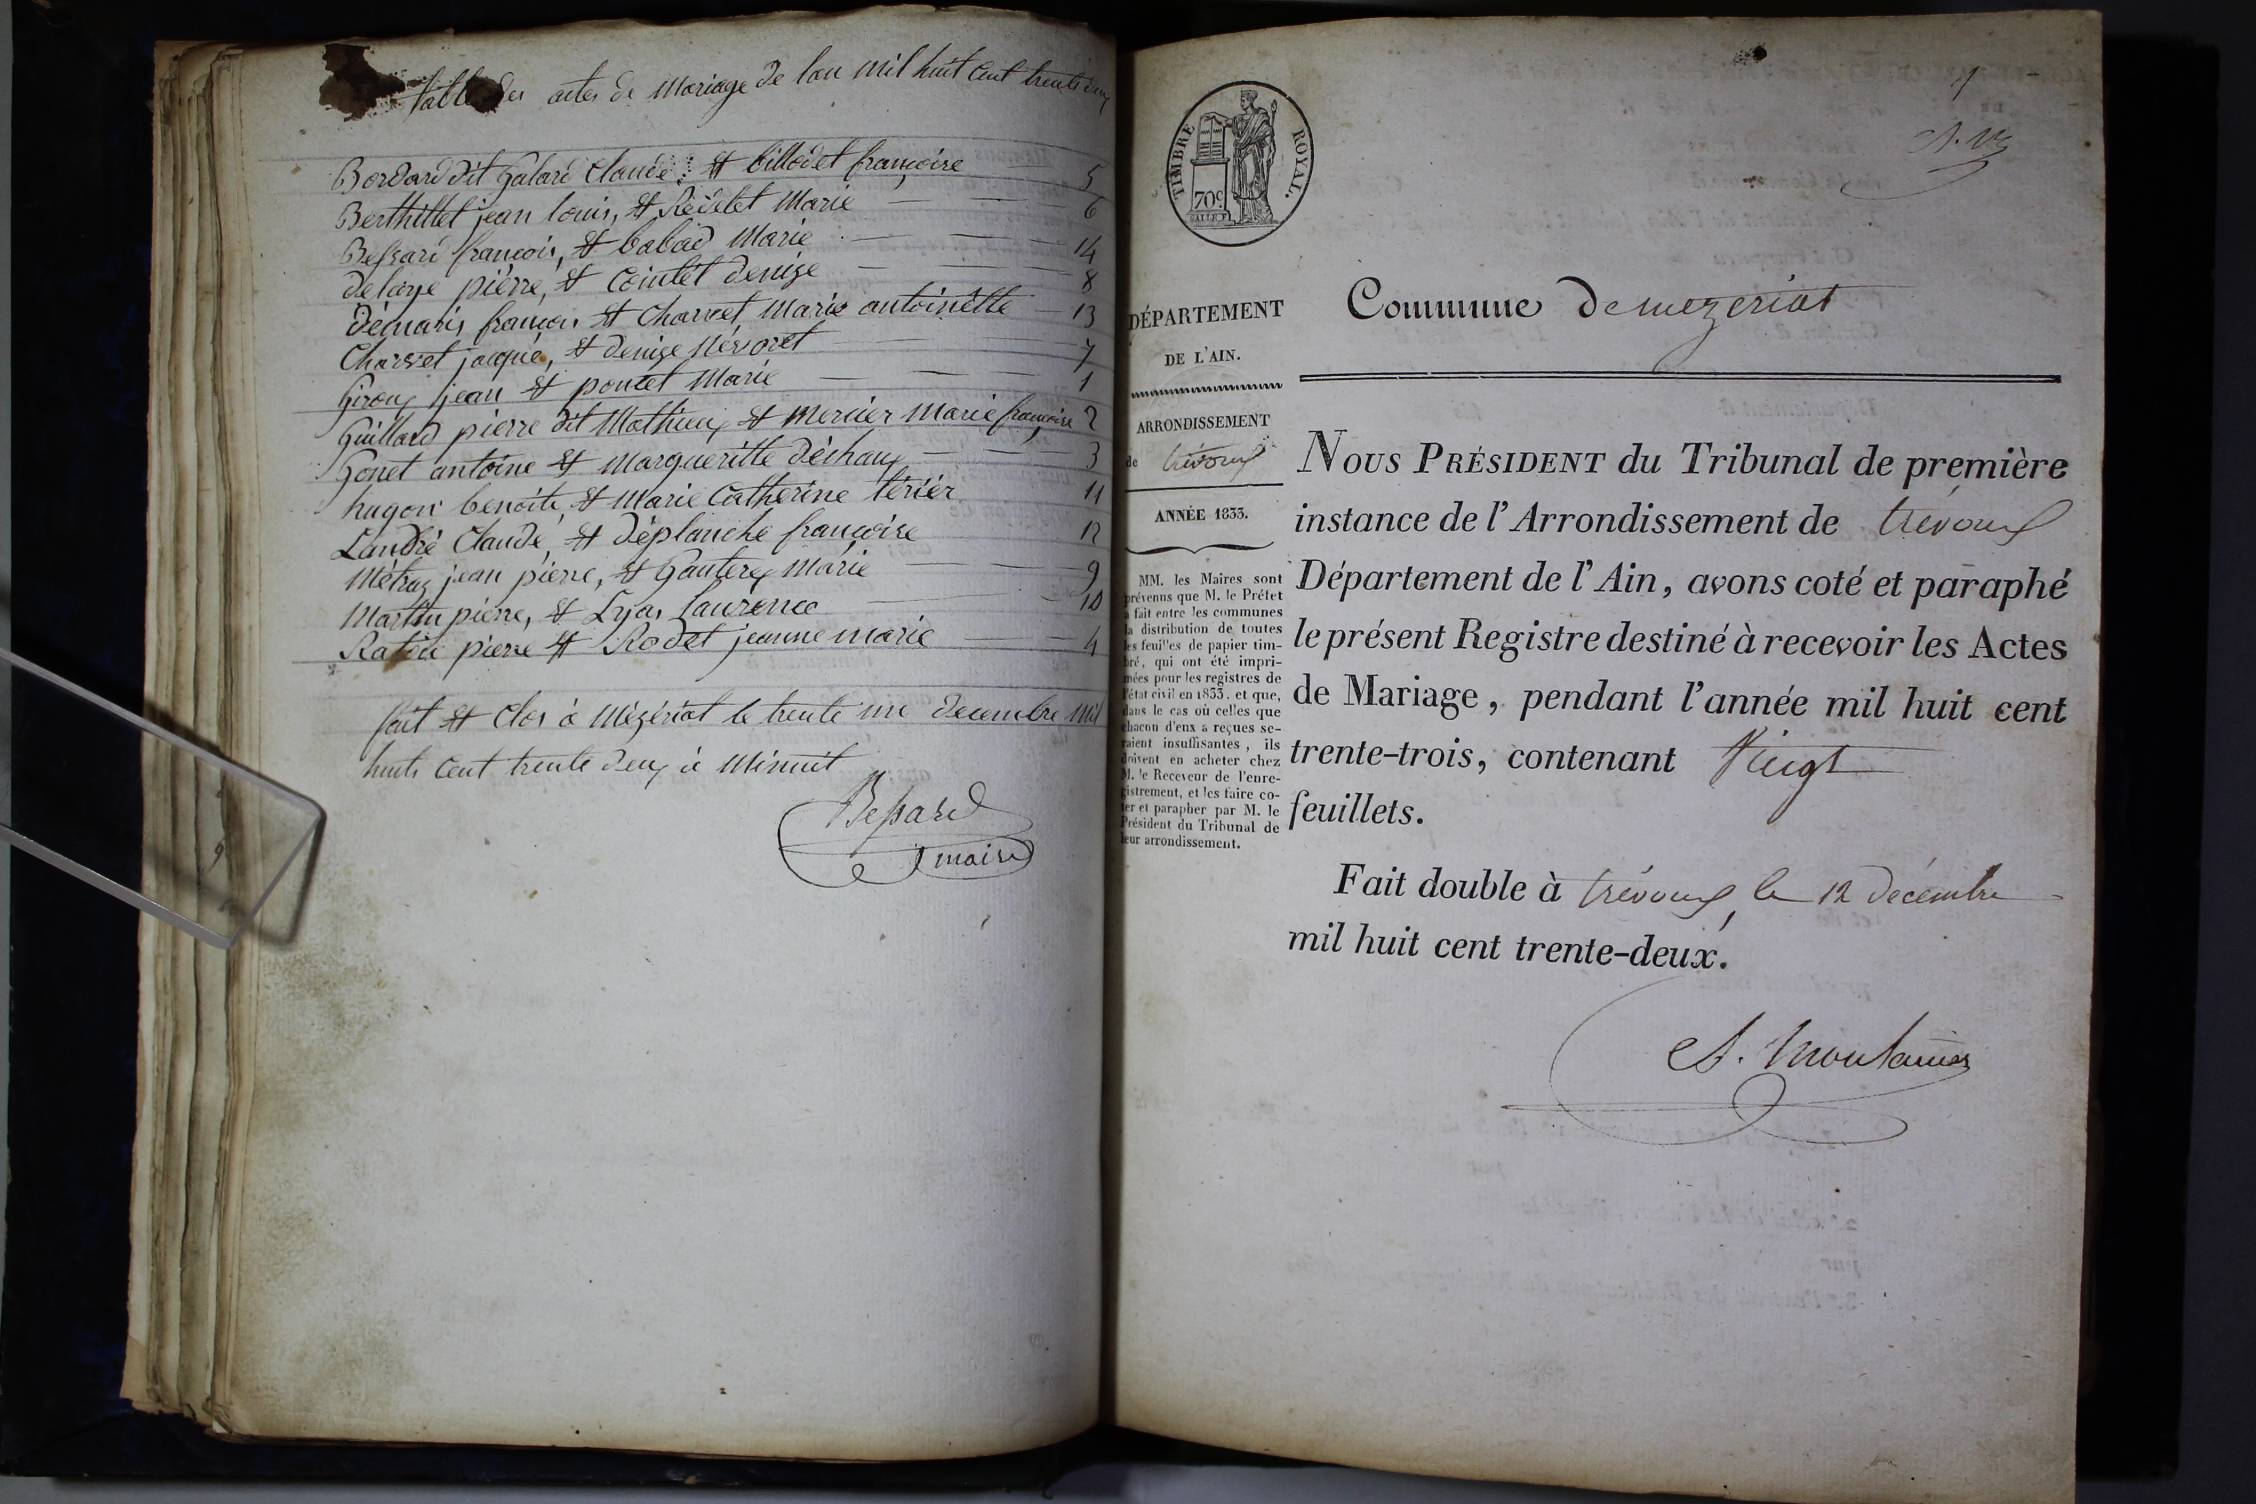 Table des actes de Mariage de l'an mil huit cent trente deux
Bordard dit Galard Claude et billodet françoise 5
Berthillet jean louis, et Révélet Marie 6
Bessard françois, et babad Marie 14
delaye pierre, et Cointet denize 8
Démaris françois et Charvet Marie antoinètte 13
Charvet jacque, et denize Névoret 7
Giroux jean et poncet Marie 1
Guillard pierre dit Mathieux et Mercier Marie françoise 2
Gonet antoine et Margueritte Déchaux 3
hugon benoite, et Marie Catherine térier 11
Landré Claude, et déplanche françoise 12
Métraz jean pierre, et Gauterex Marie 9
Martin pierre, et Lyas Laurence 10
Ratou pierre et Rodet jeanne marie 4
fait et clos à Mézériat le trente un decembre mil
huit cent trente deux à Minuit
Bessard
maire
1
TIMBRE ROYAL.
70c.
DÉPARTEMENT
DE L'AIN.
ARRONDISSEMENT
de trévoux
ANNÉE 1833.
MM. les Maires sont
prévenus que M. le Préfet
a fait entre les communes
la distribution de toutes
les feuilles de papier tim-
bré, qui ont été impri-
mées pour les registres de
l'état civil en 1833, et que,
dans le cas où celles que
chacun d'eux a reçues se-
raient insuffisantes, ils
doivent en acheter chez
M. le Receveur de l'enre-
gistrement, et les faire co-
ter et parapher par M. le
Président du Tribunal de
leur arrondissement.
Commune de mezeriat
NOUS PRÉSIDENT du Tribunal de première
instance de l'Arrondissement de trévoux
Département de l'Ain, avons coté et paraphé
le présent Registre destiné à recevoir les Actes
de Mariage, pendant l'année mil huit cent
trente-trois, contenant Vingt
feuillets.
Fait double à trévoux, le 12 décembre
mil huit cent trente-deux.